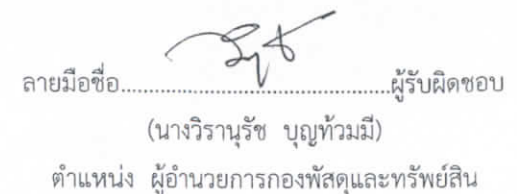 ลายมือชื่อ........................................................ผู้รับผิดชอบ
(นางวิรานุรัช บุญท้วมมี)
ตำแหน่ง ผู้อำนวยการกองพัสดุและทรัพย์สิน